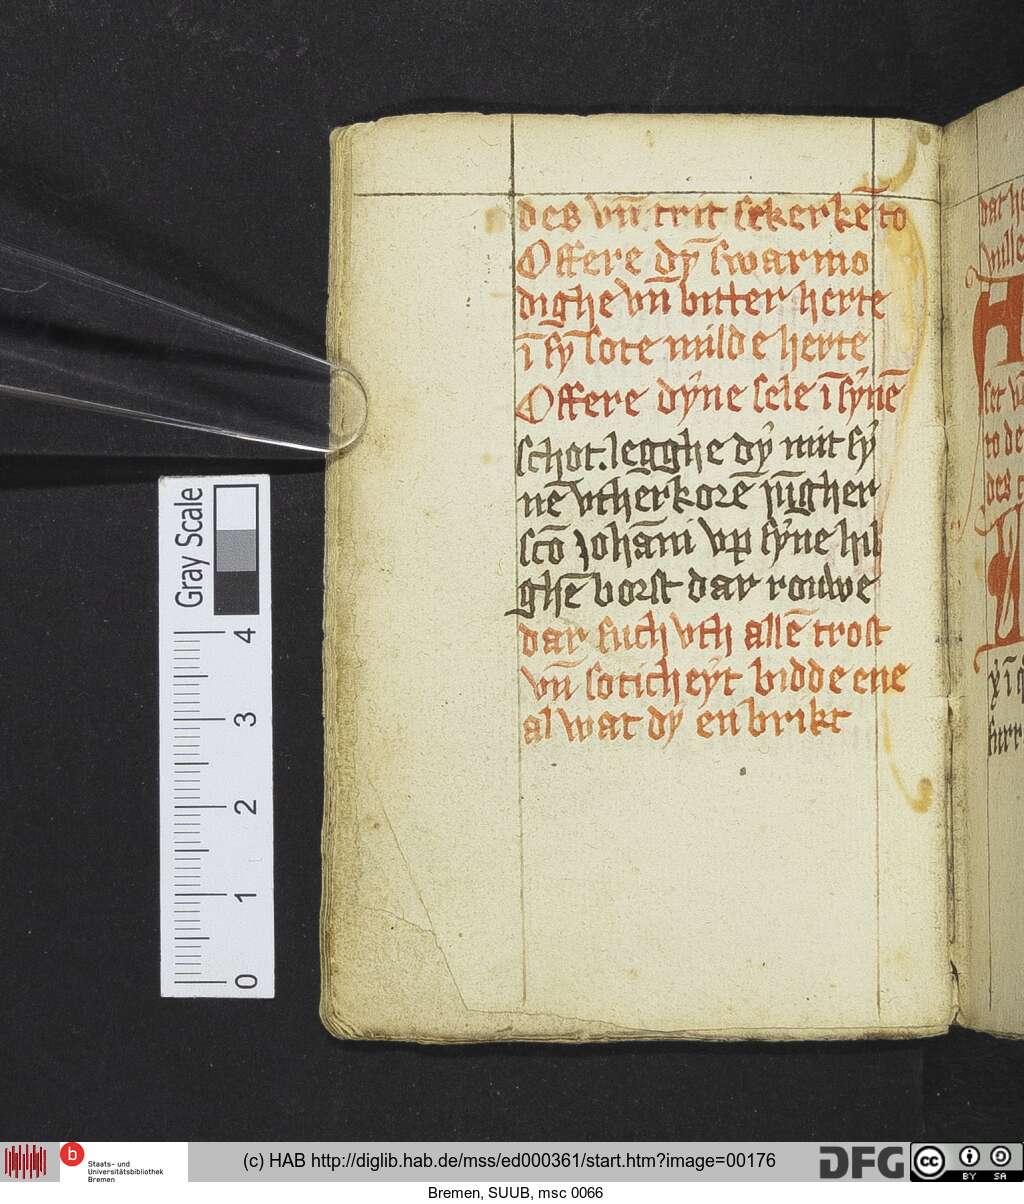 des vn̄ trit sekerkē to
Offere dȳ swarmo
dighe vn̄ bitter herte
ī sy sote milde herte
Offere dyne sele ī synē
schot. legghe dy mit sy
nē vtherkorē iūgher
scō Johāni vp syne hil
ghē borst dar rouwe
dar such vth allē trost
vn̄ soticheyt bidde ene
al wat dy en brikt
dat he
wille
set vn̄
to de
des
Gray Scale
4
3
2
1
0
b Staats- und
Universitätsbibliothek
Bremen
(c) HAB http://diglib.hab.de/mss/ed000361/start.htm?image=00176
DFG
cc BY SA
Bremen, SUUB, msc 0066